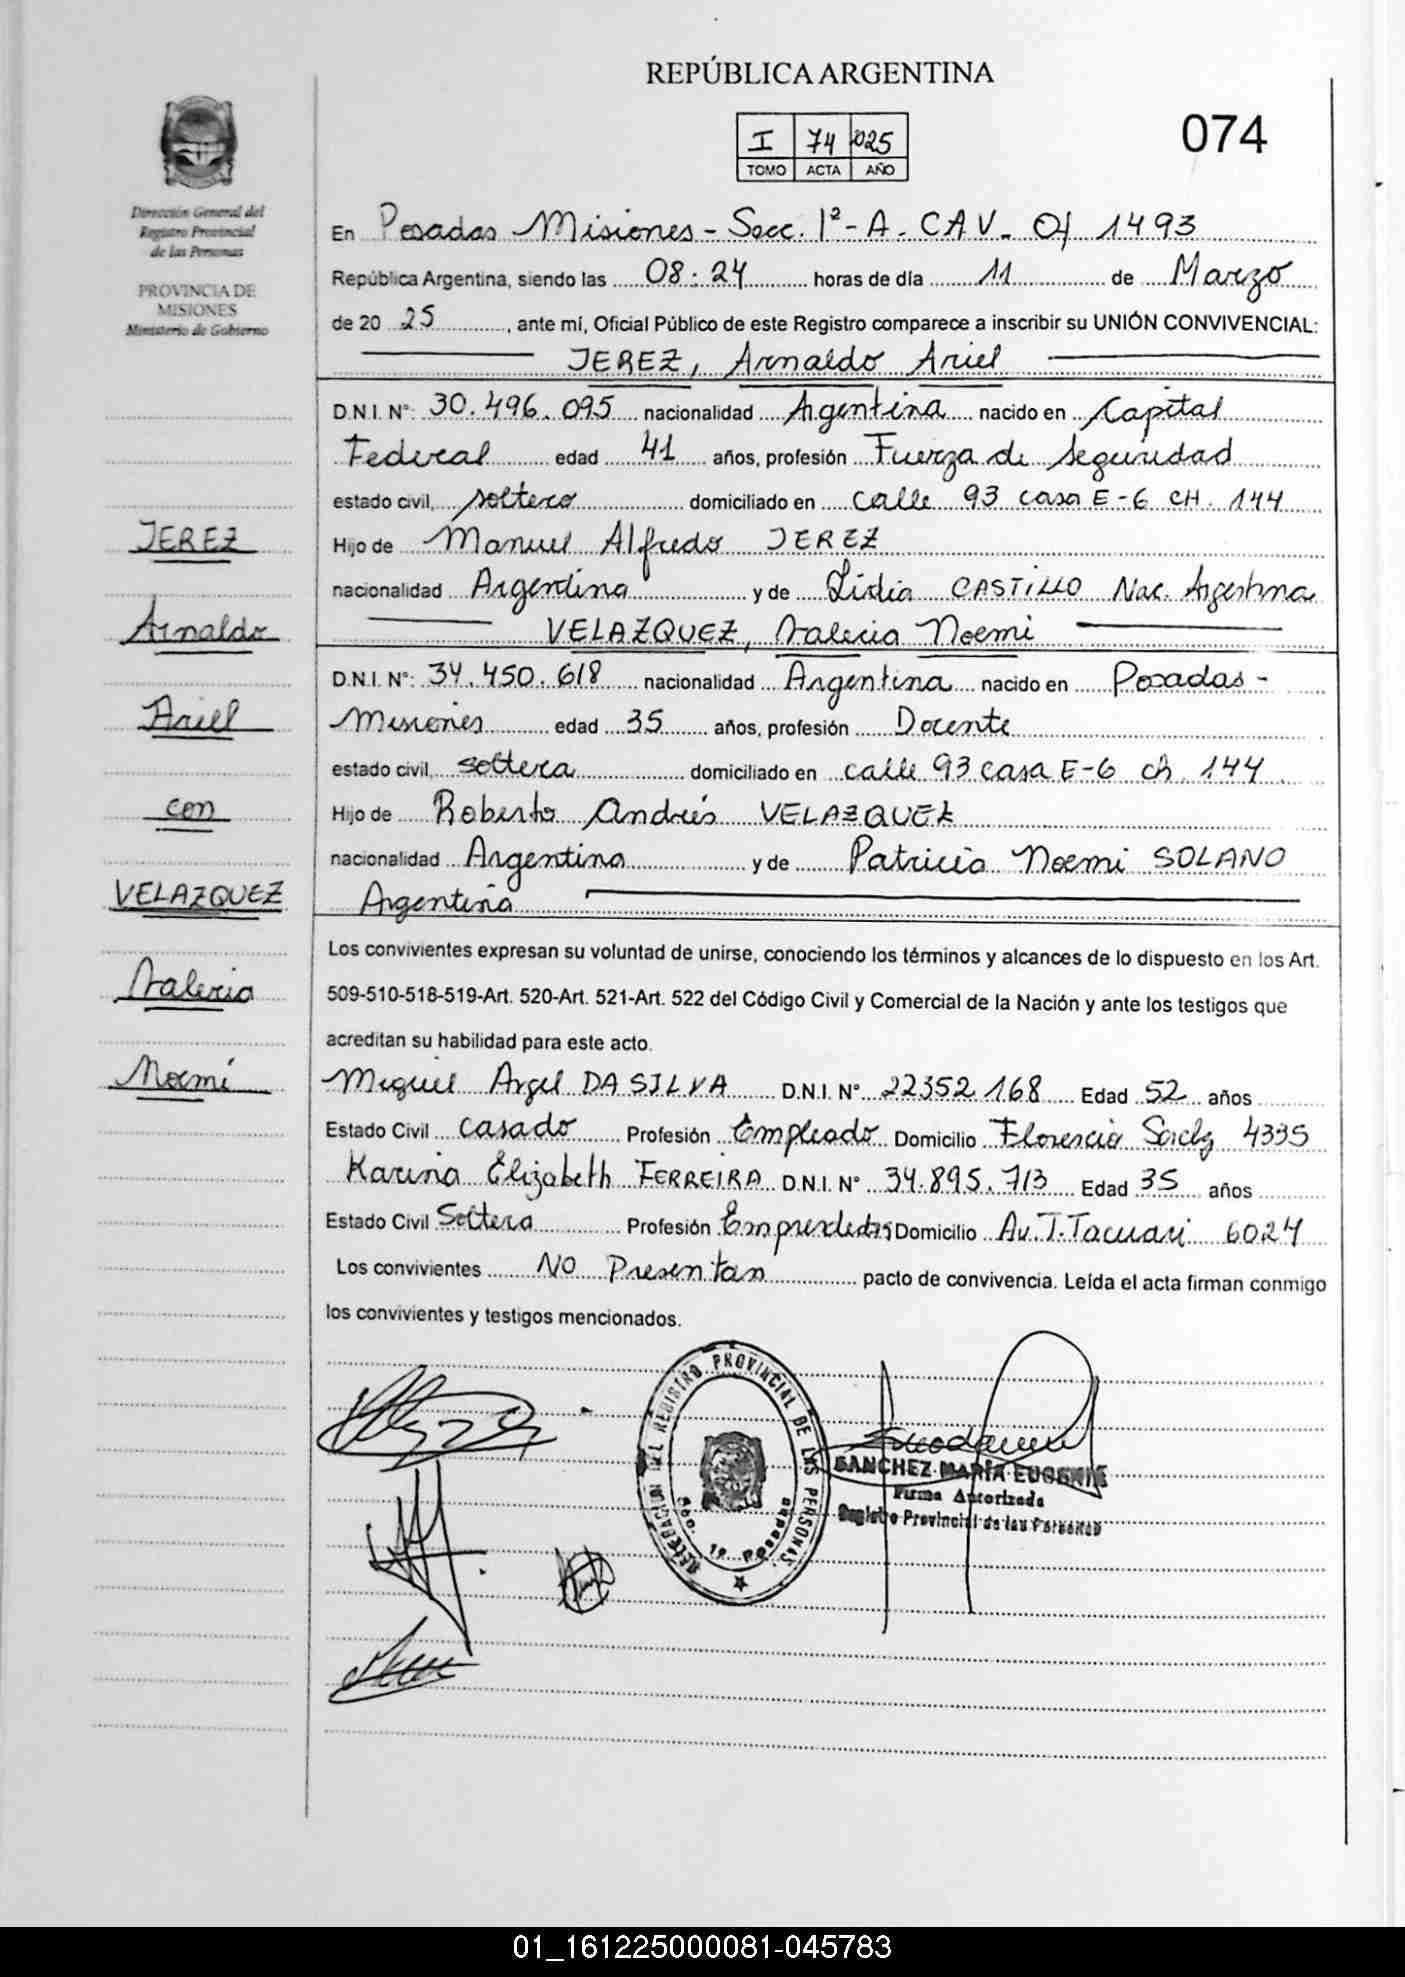 REPÚBLICA ARGENTINA
I 74 025
TOMO ACTA AÑO
074
Dirección General del
Registro Provincial
de las Personas
PROVINCIA DE
MISIONES
Ministerio de Gobierno
En Posadas Misiones - Secc. 1ª - A. CAV. Of 1493
República Argentina, siendo las 08:24 horas de día 11 de Marzo
de 20 25, ante mí, Oficial Público de este Registro comparece a inscribir su UNIÓN CONVIVENCIAL:
JEREZ, Arnaldo Ariel
D.N.I. N°: 30.496.095 nacionalidad Argentina nacido en Capital
Federal edad 41 años, profesión Fuerza de Seguridad
estado civil, soltero domiciliado en calle 93 casa E-6 CH. 144
Hijo de Manuel Alfredo JEREZ
nacionalidad Argentina y de Lidia CASTILLO Nac. Argentina
VELAZQUEZ, Valeria Noemi
D.N.I. N°: 34.450.618 nacionalidad Argentina nacido en Posadas -
Misiones edad 35 años, profesión Docente
estado civil, soltera domiciliado en calle 93 casa E-6 ch. 144
Hijo de Roberto Andrés VELAZQUEZ
nacionalidad Argentina y de Patricia Noemi SOLANO
Argentina
JEREZ
Arnaldo
Ariel
con
VELAZQUEZ
Valeria
Noemí
Los convivientes expresan su voluntad de unirse, conociendo los términos y alcances de lo dispuesto en los Art.
509-510-518-519-Art. 520-Art. 521-Art. 522 del Código Civil y Comercial de la Nación y ante los testigos que
acreditan su habilidad para este acto.
Miguel Angel DA SILVA D.N.I. N° 22352.168 Edad 52 años
Estado Civil Casado Profesión Empleado Domicilio Florencio 4335
Karina Elizabeth FERREIRA D.N.I. N° 34.895.713 Edad 35 años
Estado Civil Soltera Profesión Domicilio Av. T. Tacuari 6024
Los convivientes NO Presentan pacto de convivencia. Leída el acta firman conmigo
los convivientes y testigos mencionados.
DELEGACION DEL REGISTRO PROVINCIAL DE LAS PERSONAS
Sec. 1ª Posadas
SANCHEZ MARÍA EUGENIA
Firma Autorizada
Registro Provincial de las Personas
01_161225000081-045783